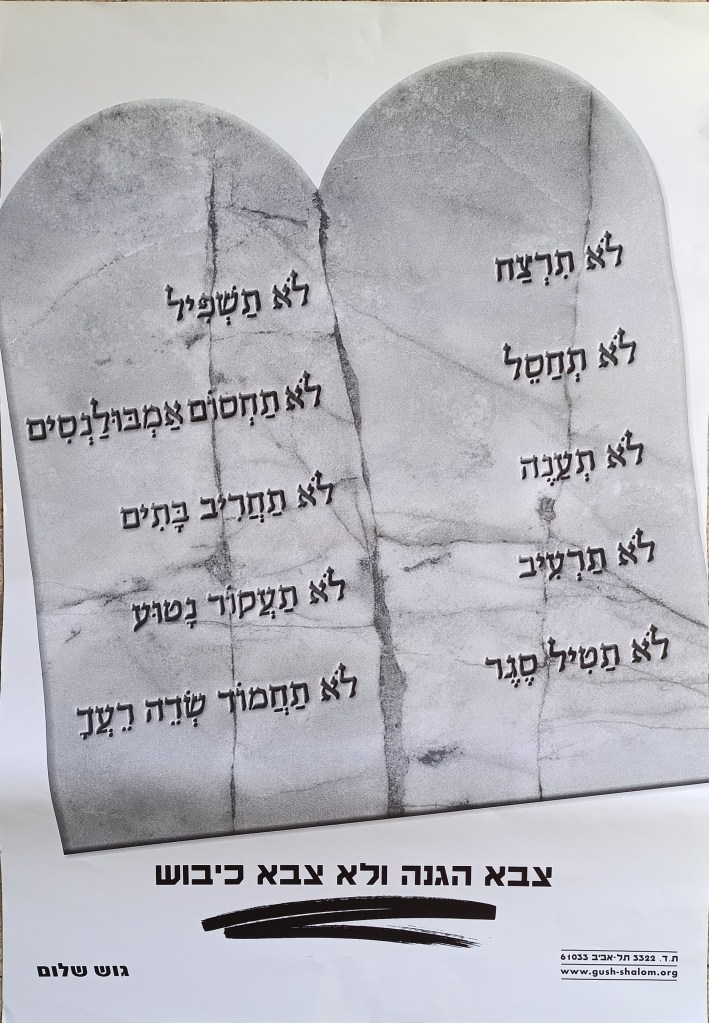 לֹא תִרְצַח
לֹא תְחַסֵל
לֹא תְעַנֶה
לֹא תַרְעִיב
לֹא תַטִיל סֶגֶר
לֹא תַשְׁפִּיל
לֹא תַחְסוֹם אַמְבּוּלַנְסִים
לֹא תַחֲרִיב בָּתִים
לֹא תַעֲקוֹר נָטוּעַ
לֹא תַחֲמוֹד שְׂדֵה רֵעֲךָ
צבא הגנה ולא צבא כיבוש
גוש שלום
ת.ד. 3322 תל-אביב 61033
www.gush-shalom.org